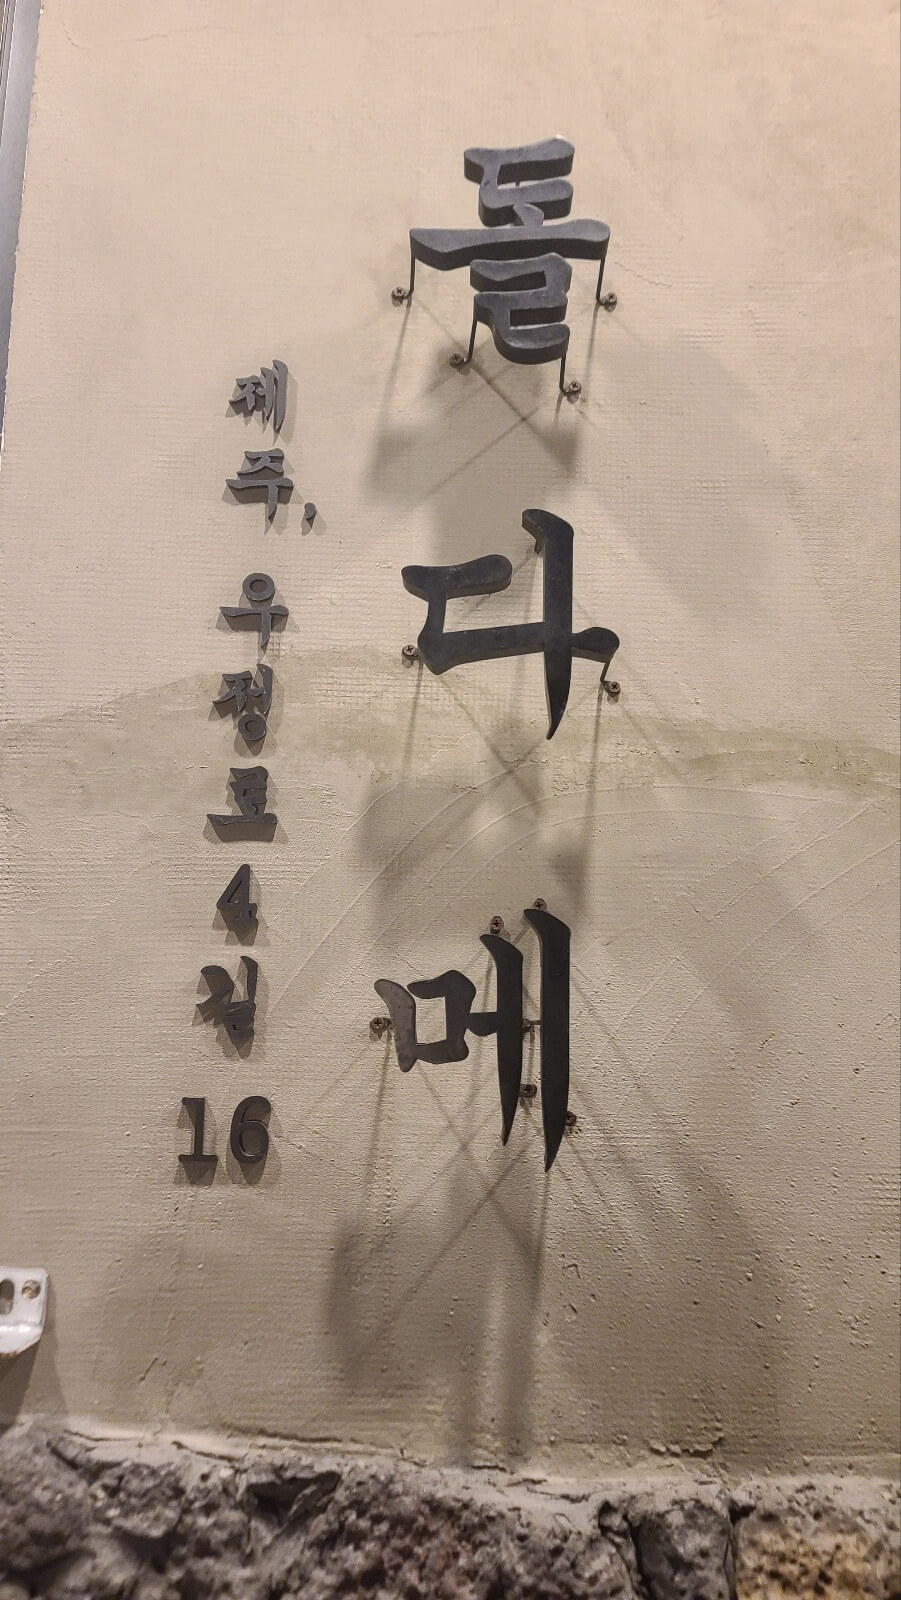 돌다메
제주, 우정로4길 16